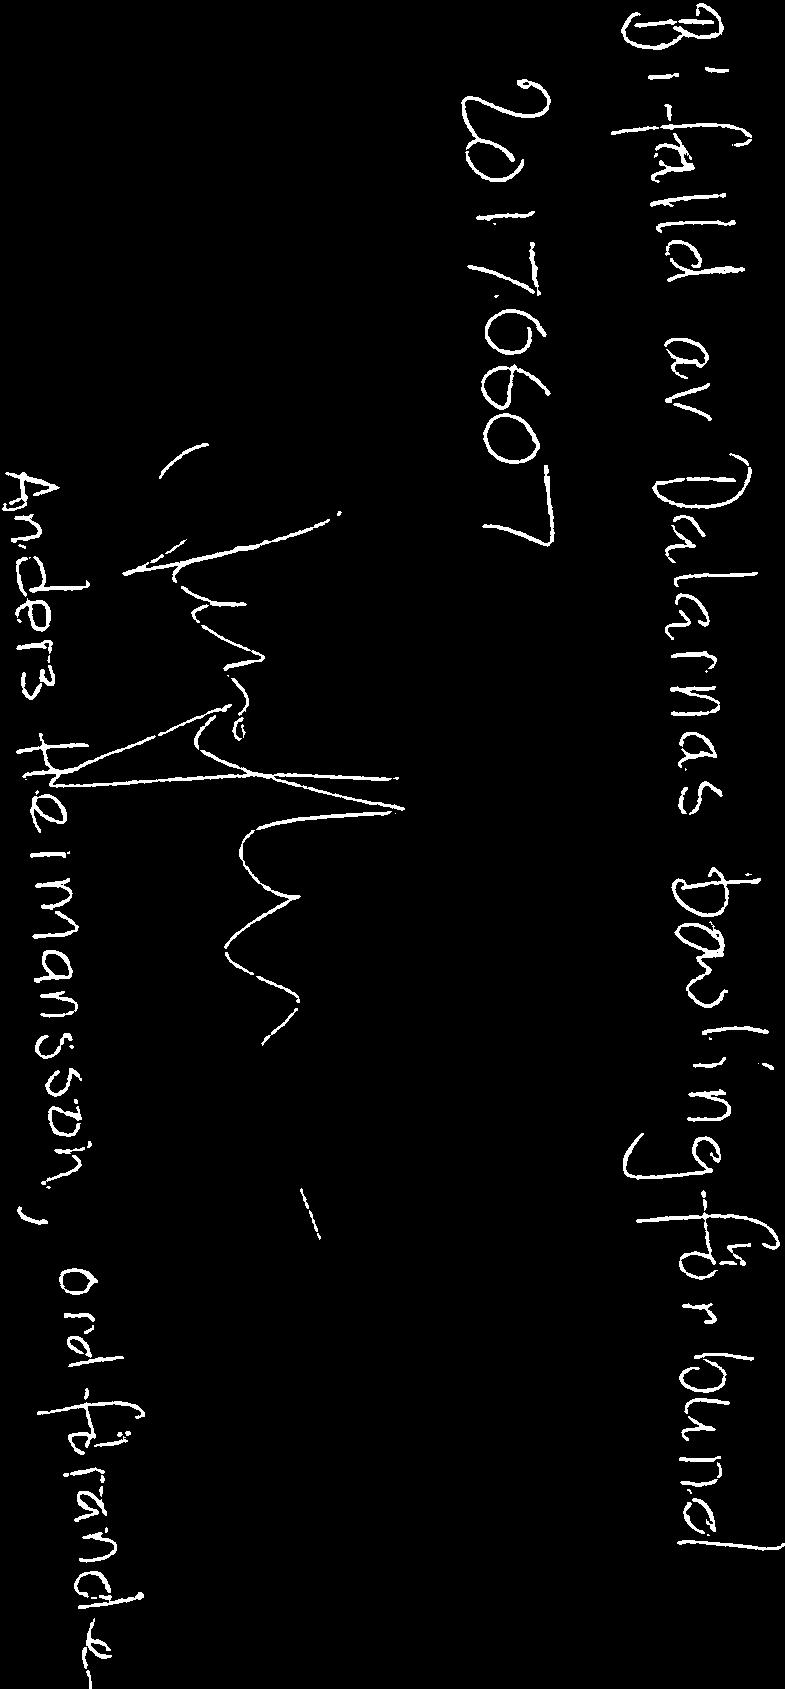 Bifalld av Dalarnas Bowlingförbund
20170607
Anders Heimansson, ordförande